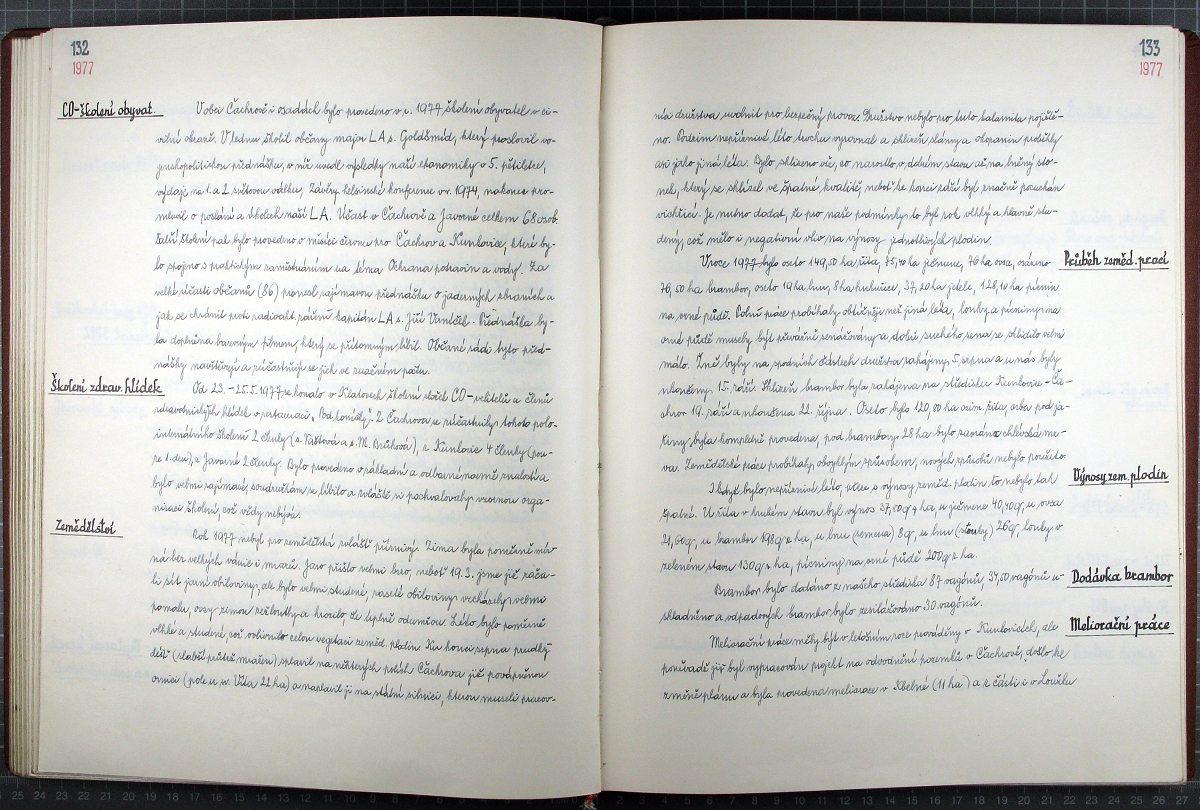 132
1977
CO-školení obyvat.
V obci Čachrově i osadách bylo provedeno v r. 1977 školení obyvatel v ci-
vilní obraně. V lednu školil občany major LA s. Goldšmíd, který proslovil vo-
jenskopolitickou přednášku, v níž uvedl výsledky naší ekonomiky v 5. pětiletce,
výdaje na 1. a 2. světovou válku, Závěry helsinské konference v r. 1974, nakonec pro-
mluvil o poslání a úkolech naší LA. Účast v Čachrově a Javorné celkem 68 osob.
Další školení pak bylo provedeno v měsíci únoru pro Čachrov a Kunkovice, které by-
lo spojeno s praktickým zaměstnáním na téma Ochrana potravin a vody. Za
velké účasti občanů (86) pronesl zajímavou přednášku o jaderných zbraních a
jak se chránit proti radioakt. záření kapitán LA s. Jiří Vaněček. Přednáška by-
la doplněna barevným filmem, který se přítomným líbil. Občané rádi tyto před-
nášky navštěvují a zúčastňují se jich ve značném počtu.
Školení zdrav. hlídek
Od 23.-25.5.1977 se konalo v Klatovech školení složek CO-velitelů a členů
zdravotnických hlídek v restauraci „Pod koníčky". Z Čachrova se zúčastnily tohoto polo-
internátního školení 2 členky (s. a s. M. Brůhová), z Kunkovic 4 členky (pou-
ze 1. den), z Javorné 2 členky. Bylo provedeno v základní a odborné normě znalostí a
bylo velmi zajímavé, soudružkám se líbilo a zvláště si pochvalovaly vzornou orga-
nizaci školení, což vždy nebývá.
Zemědělství
Rok 1977 nebyl pro zemědělství zvláště příznivý. Zima byla poměrně mír-
ná bez velkých vánic i mrazů. Jaro přišlo velmi brzo, neboť 19.3. jsme již zača-
li sít jarní obiloviny, ale bylo velmi studené, zaseté obiloviny vzcházely velmi
pomalu, ovsy zimou zežloutly a hrozilo, že úplně odumřou. Léto bylo poměrně
vlhké a studené, což ovlivnilo celou vegetaci zeměd. plodin. Ku konci srpna prudký
déšť (slabší průtrž mračen) splavil na některých polích Čachrova již povápněnou
ornici (pole u sv. Víta 22 ha) a naplavil ji na státní silnici, kterou museli pracov-
133
1977
níci družstva uvolnit pro bezpečný provoz. Družstvo nebylo pro tuto kalamitu pojiště-
no. Podzim nepříznivé léto trochu vyrovnal a sklizeň slámy a okopanin proběhly
asi jako jiná léta. Bylo sklizeno vše, co narostlo, v dobrém stavu až na lněný sto-
nek, který se sklízel ve špatné kvalitě, neboť ke konci září byl značně pocuchán
vichřicí. Je nutno dodat, že pro naše podmínky to byl rok vlhký a hlavně stu-
dený, což mělo i negativní vliv na výnosy jednotlivých plodin.
Průběh zeměd. prací
V roce 1977 bylo oseto 149,50 ha žita, 75,40 ha ječmene, 76 ha ovsa, osázeno
76,50 ha brambor, oseto 19 ha lnu, 8 ha kukuřice, 37,20 ha jetele, 128,10 ha pícnin
na orné půdě. Polní práce probíhaly obtížněji než jiná léta, louky a pícniny na
orné půdě musely být převážně senážovány a dobře suchého sena se sklidilo velmi
málo. Žně byly na spodních částech družstva zahájeny 5. srpna a u nás byly
ukončeny 15. září. Sklizeň brambor byla zahájena na středisku Kunkovice-Ča-
chrov 19. září a ukončena 22. října. Oseto bylo 120,00 ha ozim. žita, orba pod ja-
řiny byla kompletně provedena, pod brambory 28 ha bylo zaoráno chlévské mr-
vy. Zemědělské práce probíhaly obvyklým způsobem, nových způsobů nebylo použito.
Výnosy zem. plodin
I když bylo nepříznivé léto, přece s výnosy zeměd. plodin to nebylo tak
špatné. U žita v hrubém stavu byl výnos 37,50 q z ha, u ječmene 40,40 q, u ovsa
21,60 q, u brambor 198 q z ha, u lnu (semena) 8 q, u lnu (stonky) 26 q, louky v
zeleném stavu 130 q z ha, pícniny na orné půdě 200 q z ha.
Dodávka brambor
Brambor bylo dodáno z našeho střediska 87 vagónů, 37,50 vagónů u-
skladněno a odpadových brambor bylo zesilážováno 30 vagónů.
Meliorační práce
Meliorační práce měly být v letošním roce prováděny v Kunkovicích, ale
poněvadž již byl vypracován projekt na odvodnění pozemků v Čachrově, došlo ke
změně plánu a byla provedena meliorace v Kbelné (11 ha) a z části i v Loučku